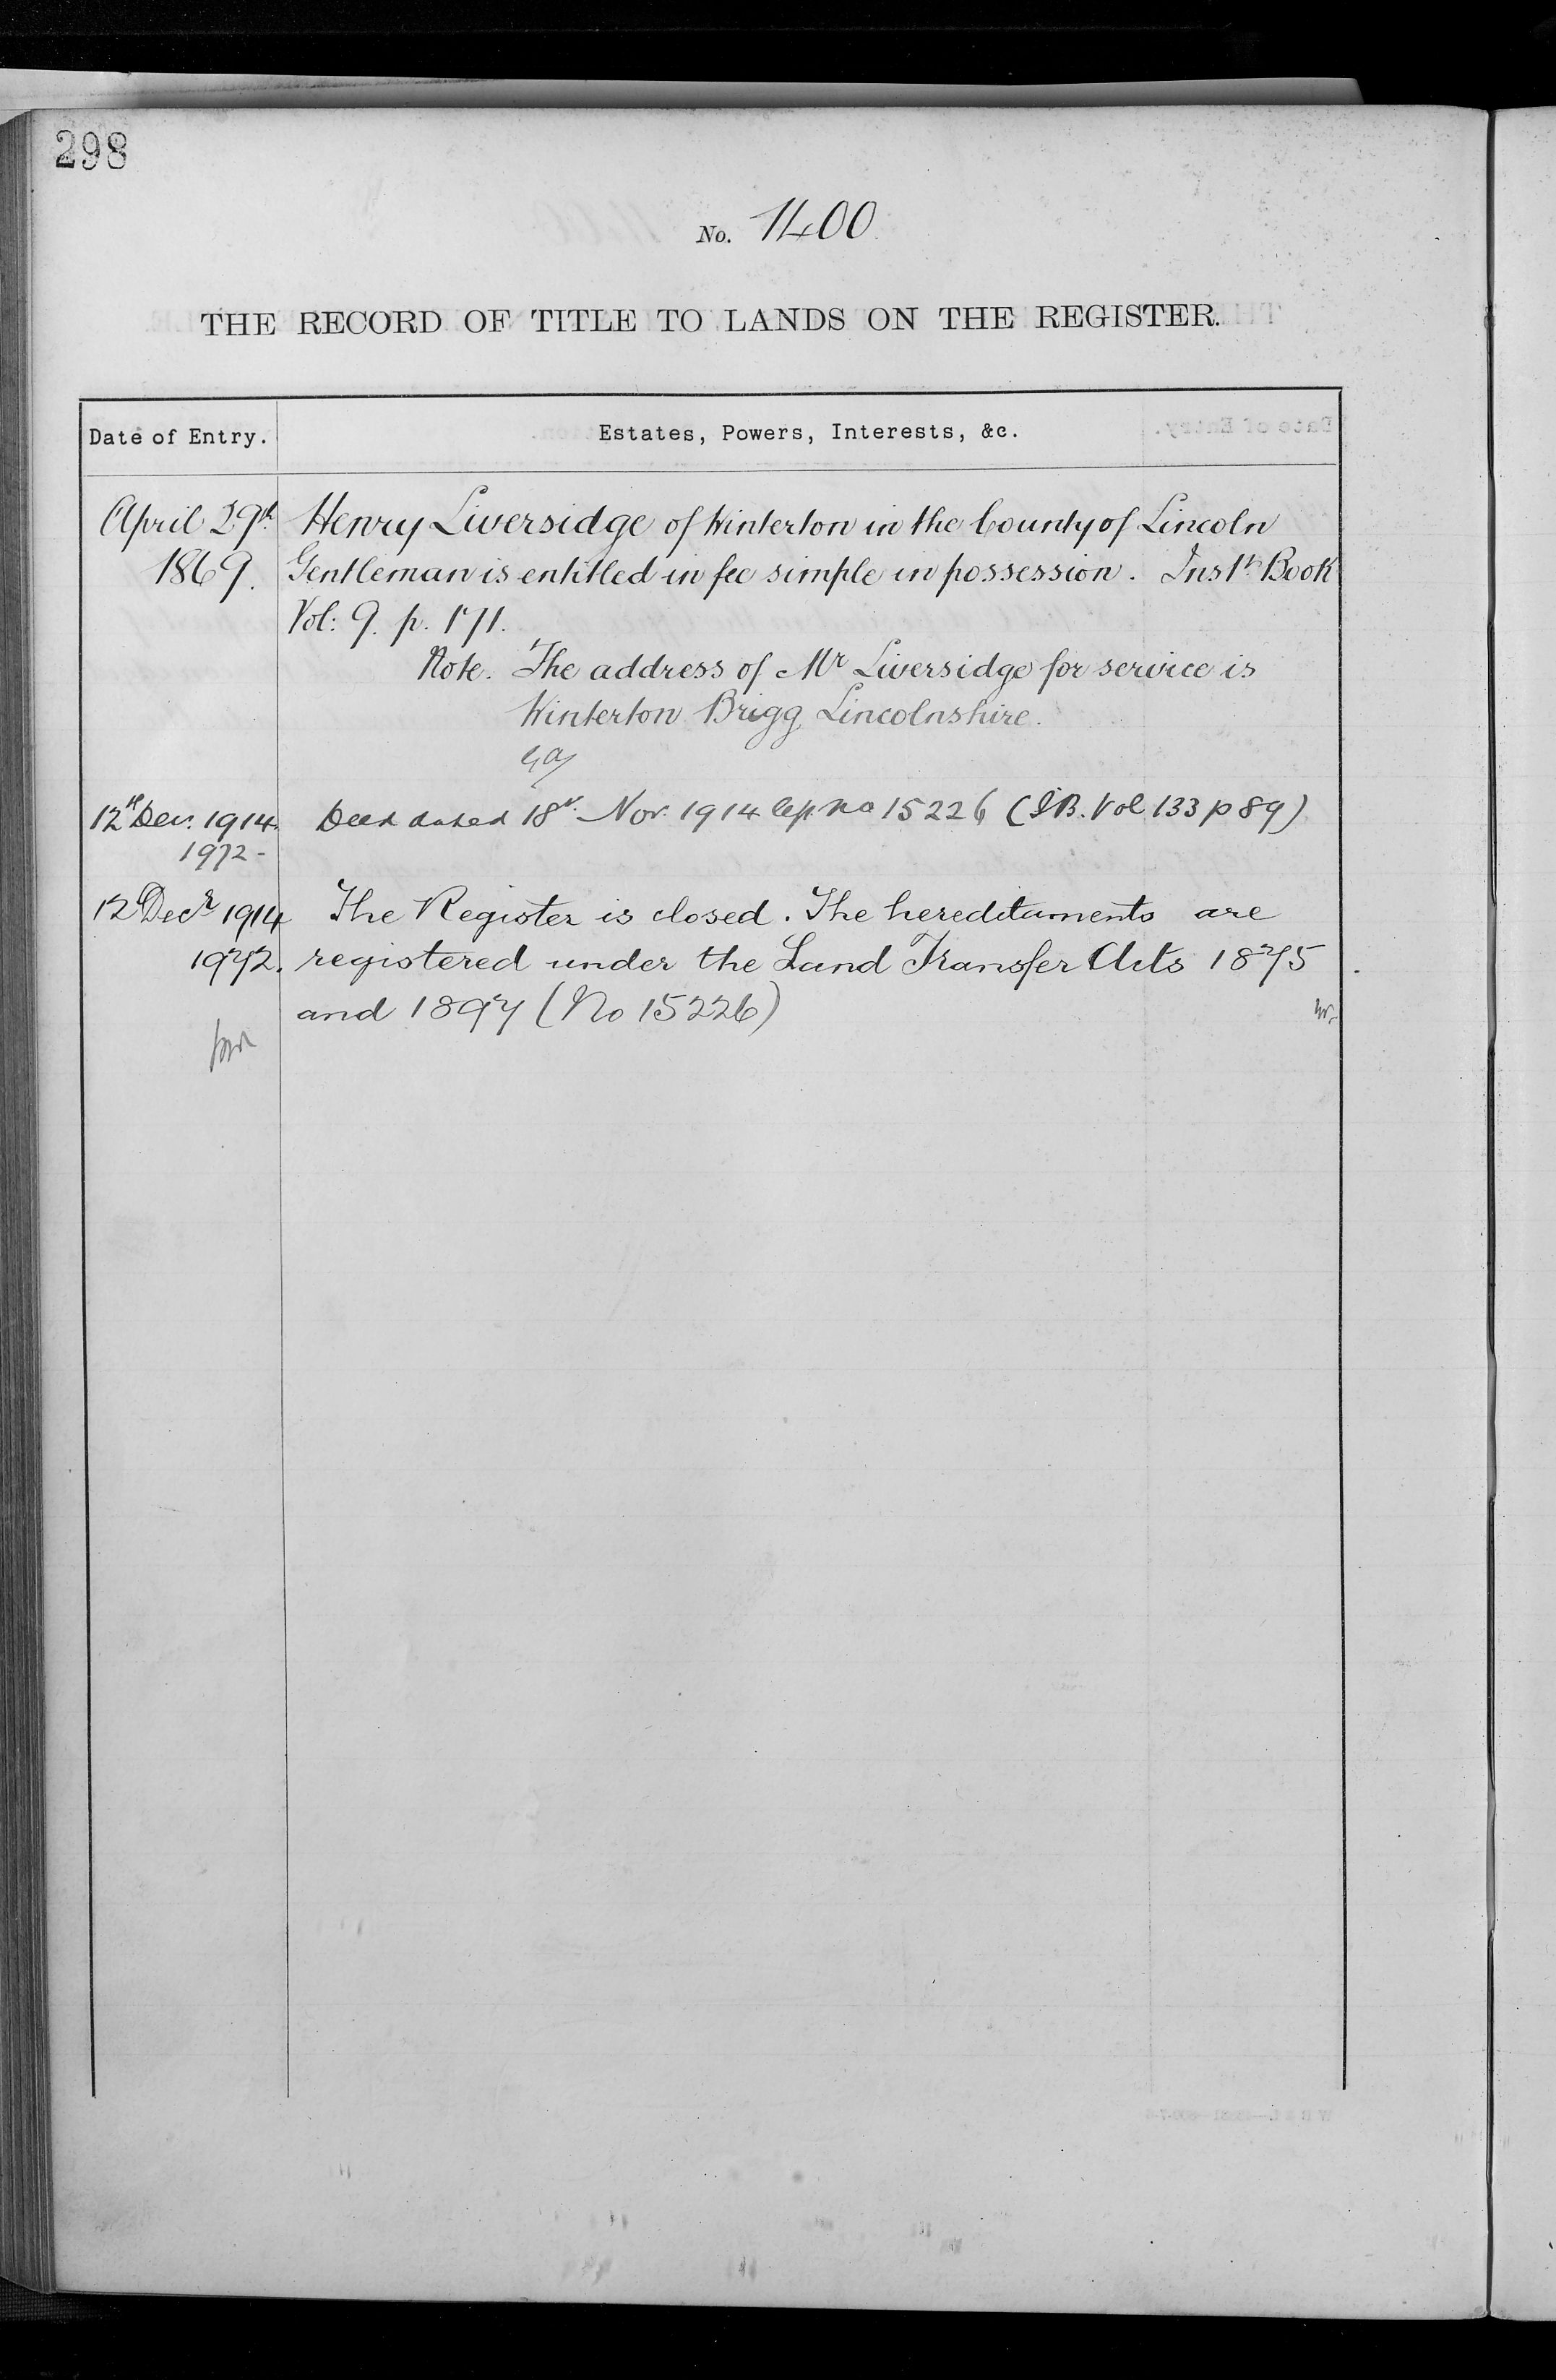 298
No. 1400
THE RECORD OF TITLE TO LANDS ON THE REGISTER.
Date of Entry. Estates, Powers, Interests, &c.
April 29th Henry Liversidge of Winterton in the County of Lincoln
1869. Gentleman is entitled in fee simple in possession. Inst. Book
Vol: 9. p. 171.
Note. The address of Mr Liversidge for service is
Winterton Brigg Lincolnshire.
12th Dec. 1914. Deed dated 18th Nov. 1914 No 15226 (I.B. Vol 133 p 89)
1972-
12 Decr 1914 The Register is closed. The hereditaments are
1972. registered under the Land Transfer Acts 1875
and 1897 (No 15226)